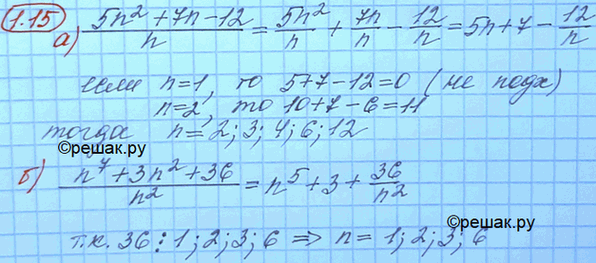 1.15
а) (5n² + 7n - 12)/n = 5n²/n + 7n/n - 12/n = 5n + 7 - 12/n
если n=1, то 5+7-12=0 (не подх)
n=2, то 10+7-6=11
тогда n=2;3;4;6;12
©решак.ру
б) (n⁷ + 3n² + 36)/n² = n⁵ + 3 + 36/n²
©решак.ру
т.к. 36 ⋮ 1;2;3;6 ⇒ n=1;2;3;6